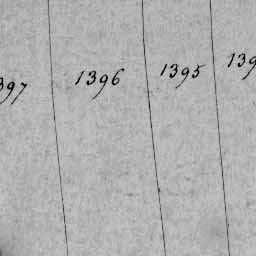 397 1396 1395 139